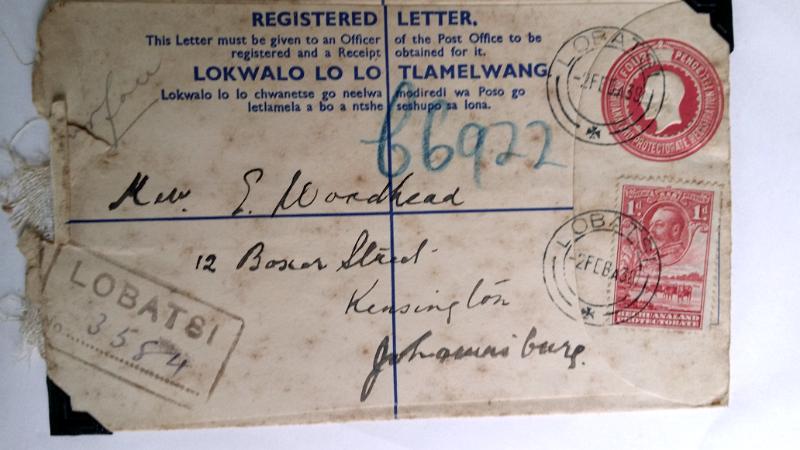 REGISTERED LETTER.
This Letter must be given to an Officer of the Post Office to be
registered and a Receipt obtained for it.
LOKWALO LO LO TLAMELWANG.
Lokwalo lo lo chwanetse go neelwa modiredi wa Poso go
letlamela a bo a ntshe seshupo sa lona.
66922
LOBATSI
2 FEB A 39
E. Woodhead
12 Boxer Street
Kensington
Johannesburg.
LOBATSI
No. 3584
FOUR PENCE
PROTECTORATE
LOBATSI
2 FEB A 39
1d 1d
BECHUANALAND
PROTECTORATE